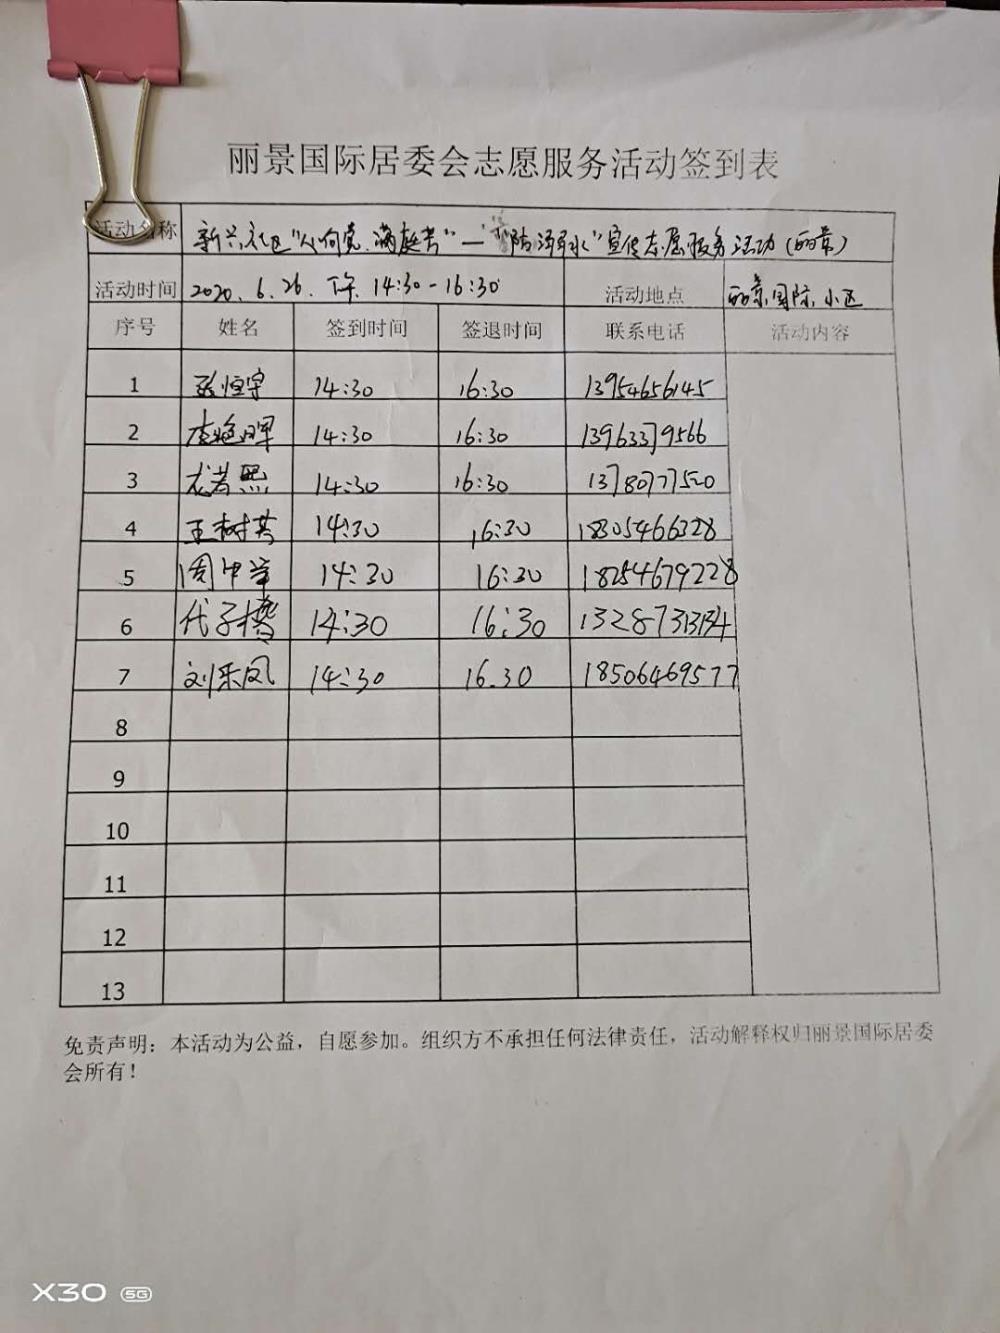 丽景国际居委会志愿服务活动签到表
活动名称 新兴社区"心向党、满庭芳"—"防溺水"宣传志愿服务活动(丽景)
活动时间 2020.6.26.下午 14:30-16:30 活动地点 丽景国际小区
序号 姓名 签到时间 签退时间 联系电话 活动内容
1 张恒宇 14:30 16:30 13954656145
2 14:30 16:30 13963379566
3 尤若熙 14:30 16:30 13780777520
4 王树芳 14:30 16:30 18305466328
5 周中 14:30 16:30 18254679228
6 代子 14:30 16:30
7 刘乐凤 14:30 16.30 18506469577
8
9
10
11
12
13
免责声明：本活动为公益，自愿参加。组织方不承担任何法律责任，活动解释权归丽景国际居委
会所有！
X30 5G